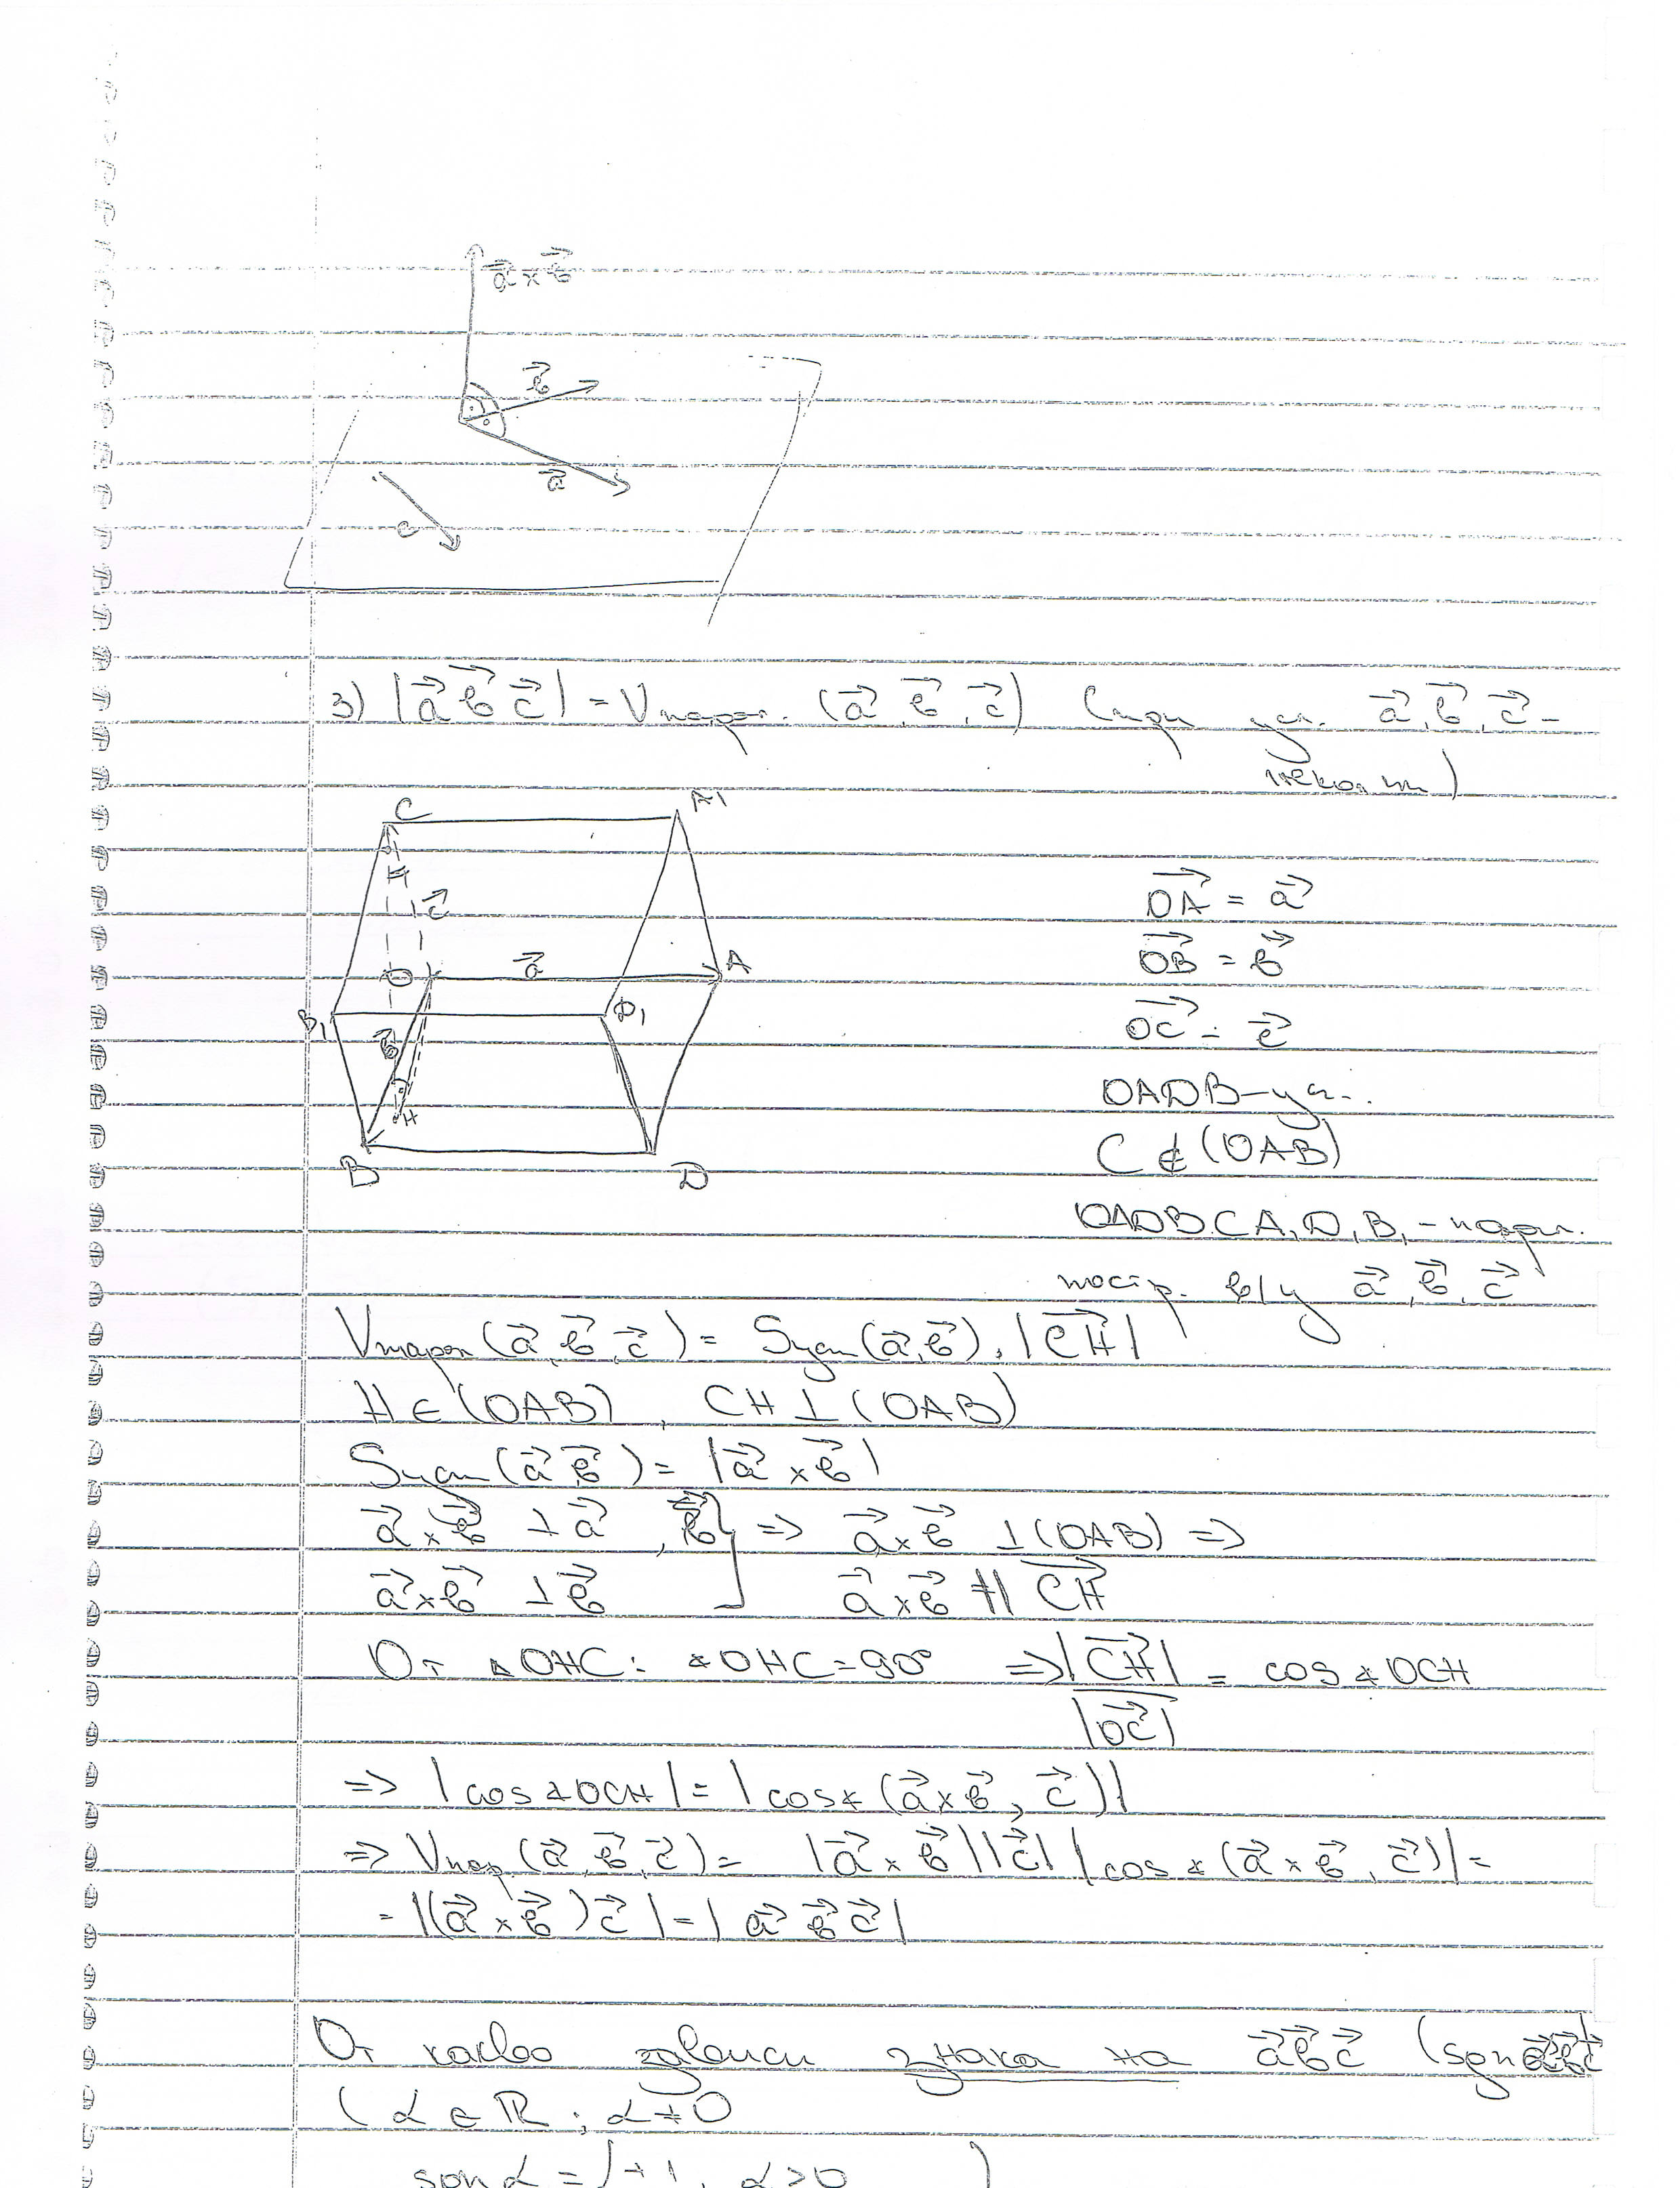 a⃗ × b⃗
b⃗
a⃗
c
3) |a⃗ b⃗ c⃗| = Vпарал. (a⃗, b⃗, c⃗) (при усл. a⃗, b⃗, c⃗ –
некомпл)
C A₁
H
c⃗
O a⃗ A
B₁ D₁
b⃗
H
B D
OA⃗ = a⃗
OB⃗ = b⃗
OC⃗ = c⃗
OADB – усп.
C ∉ (OAB)
OADBCA₁D₁B₁ – парал.
постр. в/у a⃗, b⃗, c⃗
Vпарал (a⃗, b⃗, c⃗) = Sусп (a⃗, b⃗) . |CH⃗|
H ∈ (OAB), CH ⊥ (OAB)
Sусп (a⃗, b⃗) = |a⃗ × b⃗|
a⃗ × b⃗ ⊥ a⃗ , b⃗ } => a⃗ × b⃗ ⊥ (OAB) =>
a⃗ × b⃗ ⊥ b⃗ a⃗ × b⃗ ∦ CH⃗
От △OHC: ∢OHC = 90° => |CH⃗| / |OC⃗| = cos ∢OCH
=> |cos ∢OCH| = |cos ∢ (a⃗ × b⃗, c⃗)|
=> Vпар. (a⃗, b⃗, c⃗) = |a⃗ × b⃗| |c⃗| |cos ∢ (a⃗ × b⃗, c⃗)| =
= |(a⃗ × b⃗) c⃗| = |a⃗ b⃗ c⃗|
От какво зависи знака на a⃗ b⃗ c⃗ (sgn a⃗ b⃗ c⃗
(α ∈ ℝ ; α ≠ 0
sgn α = { +1, α > 0 )